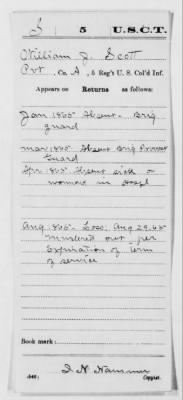 S | 5 | U.S.C.T.
William J. Scott
Pvt, Co. A, 5 Reg't U. S. Col'd Inf.
Appears on
Returns as follows:
Jan 1865 Absent. Brig
guard
Mar 1865 Absent Brig Provost
Guard
Apr 1865 Absent sick or
wounded in Hospl
Aug 1865. Loss, Aug 29. 65
Mustered out per
Expiration of term
of service
Book mark:
(546) Copyist.